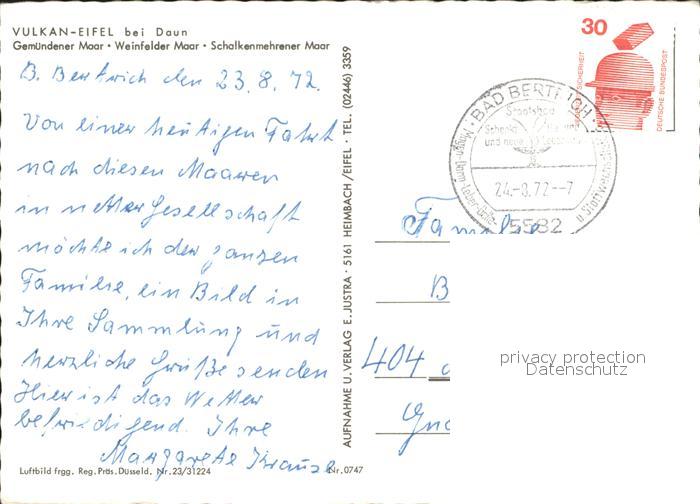 VULKAN-EIFEL bei Daun
Gemündener Maar • Weinfelder Maar • Schalkenmehrener Maar
B. Bertrich den 23.8.72.
Von einer heutigen Fahrt
nach diesen Maaren
in netter Gesellschaft
möchte ich der ganzen
Familie, ein Bild in
Ihre Sammlung und
herzliche Grüße senden
Hier ist das Wetter
befriedigend. Ihre
Margarete Krause
Luftbild frgg. Reg. Präs. Düsseld. Nr. 23/31224
Nr. 0747
AUFNAHME U. VERLAG E. JUSTRA • 5161 HEIMBACH/EIFEL • TEL. (02446) 3359
30
SICHERHEIT
DEUTSCHE BUNDESPOST
BAD BERTRICH
Staatsbad
und neue
Magen-Darm-Leber-Galle-
u. Stoffw
24.-8.72.--7
5582
Familie
B
404
privacy protection
Datenschutz